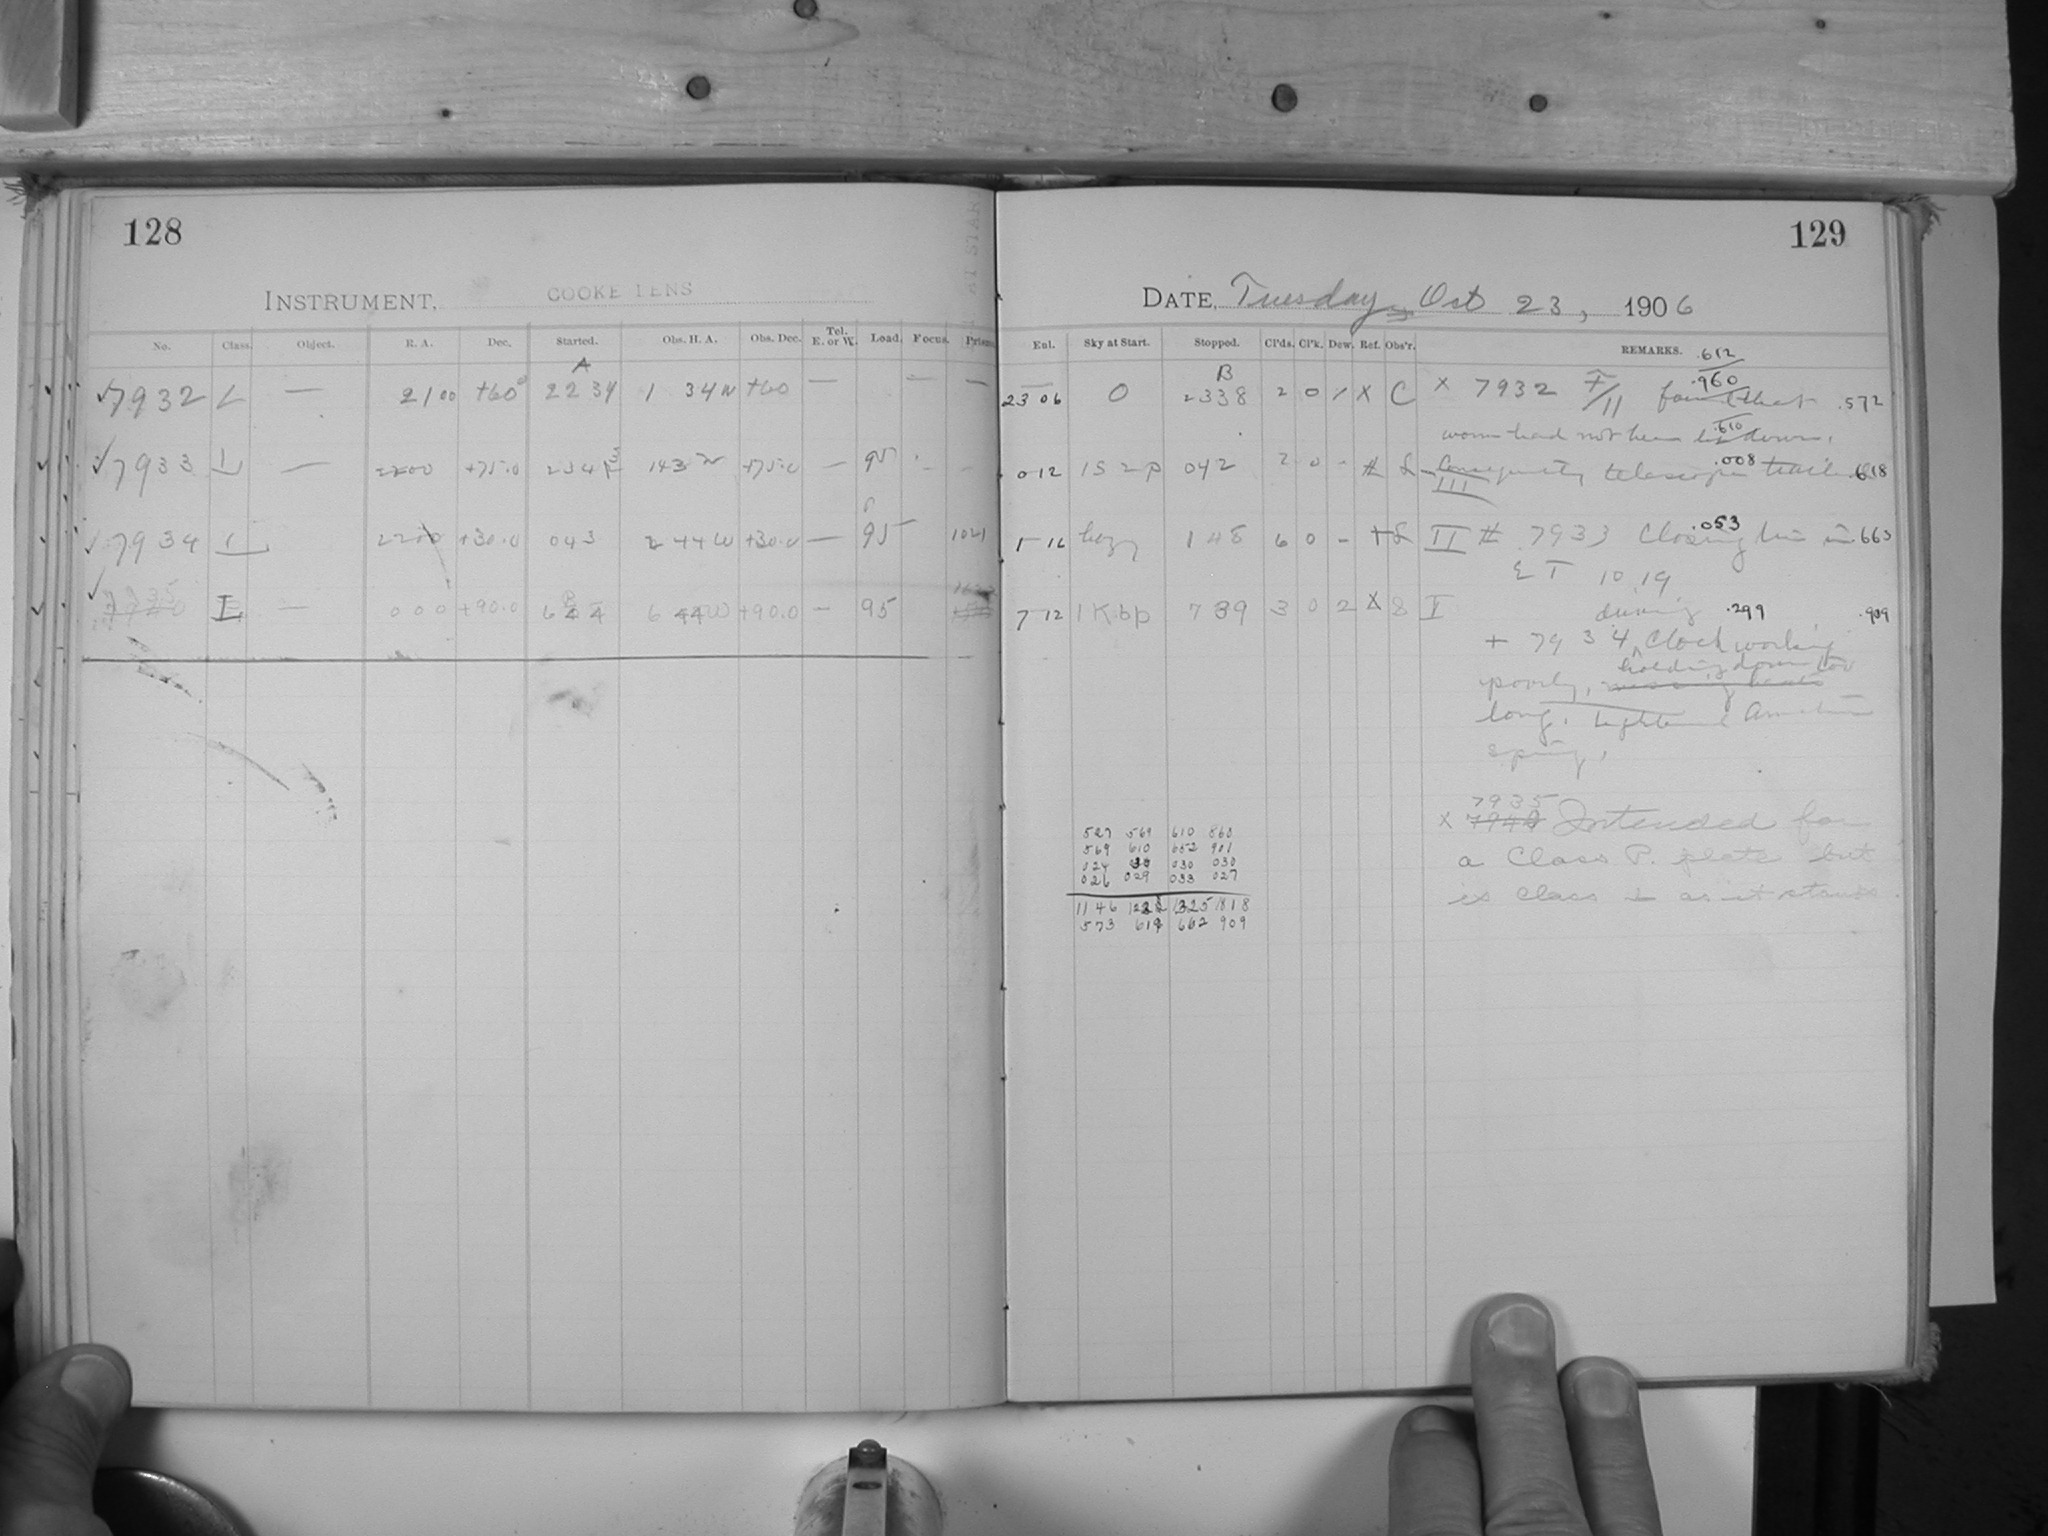 128
INSTRUMENT, COOKE LENS
No. Class. Object. R. A. Dec. Started. Obs. H. A. Obs. Dec. Tel. E. or W. Load. Focus. Prism
A
7932 L — 21 00 +60° 22 34 1 34 W +60 — — —
7933 L — 2200 +75.0 234 143 W +75.0 — 95
7934 L — 2200 +30.0 043 2 44 W +30.0 — 95 1021
7935
L — 0 0 0 +90.0 6 44 6 44 W +90.0 — 95
129
DATE, Tuesday, Oct 23, 1906
Enl. Sky at Start. Stopped. Cl'ds. Cl'k. Dew. Ref. Obs'r. REMARKS. .612
B
23 06 0 2338 2 0 X C X 7932 found that .960 .572
worm had not been down. .610
0 12 1S 2p 042 2 0 - # Consequently telescope trailed .008 .618
III
1 16 hazy 1 48 6 0 - + II # 7933 Closing .053 663
10 19
7 12 7 39 3 0 2 X 8 I driving .299 .909
+ 7934 Clock working
holding down too
poorly,
long. tightened
spring.
7935
X 7940 Intended for
a Class P. plate but
is Class L as it stands.
527 569 610 860
569 610 652 901
024 030 030 030
026 029 033 027
1146 1325 1818
573 619 662 909